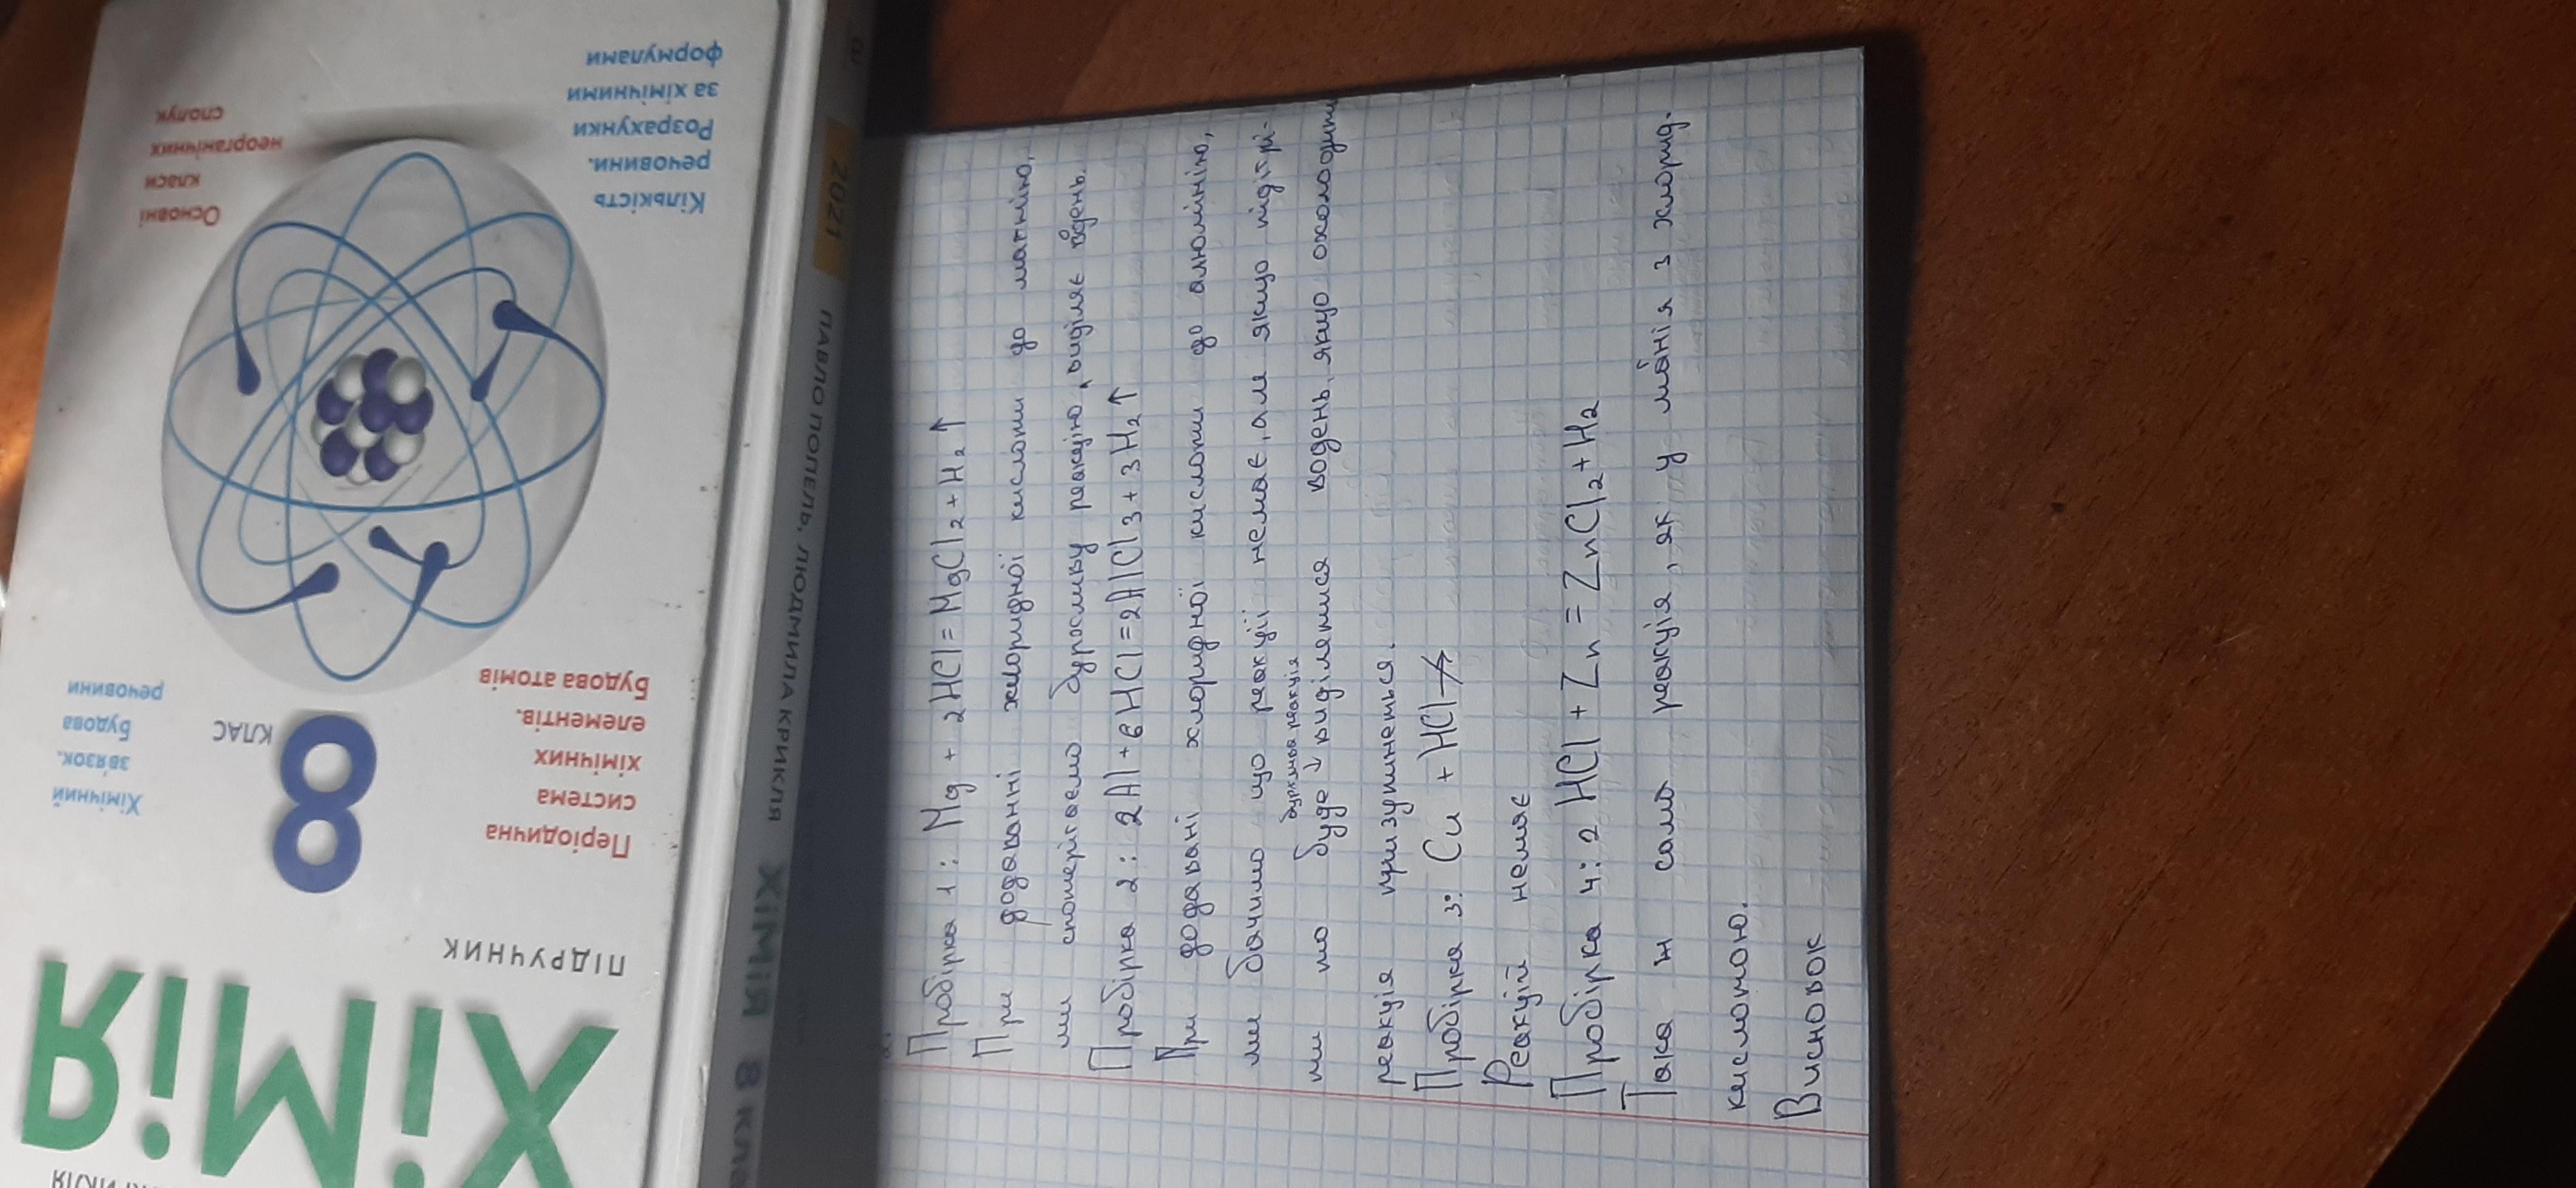 ХІМІЯ
ПІДРУЧНИК
8
КЛАС
Періодична
система
хімічних
елементів.
Будова атомів
Хімічний
зв'язок.
Будова
речовини
Кількість
речовини.
Розрахунки
за хімічними
формулами
Основні
класи
неорганічних
сполук
ХІМІЯ 8 кла
ПАВЛО ПОПЕЛЬ, ЛЮДМИЛА КРИКЛЯ
2021
Пробірка 1: Mg + 2HCl = MgCl2 + H2↑
При додаванні хлоридної кислоти до магнію,
ми спостерігаємо бурхливу реакцію, виділяє водень.
Пробірка 2: 2Al + 6HCl = 2AlCl3 + 3H2↑
При додавані хлоридної кислоти до алюмінію,
ми бачимо що реакції немає, але якщо підігрі-
бурхлива реакція
ти то буде ↓ виділятися водень, якщо охолодити
реакція призупинеться.
Пробірка 3: Cu + HCl ↛
Реакції немає
Пробірка 4: 2HCl + Zn = ZnCl2 + H2
Така ж сама реакція, як у магнія з хлорид.
кислотою.
Висновок